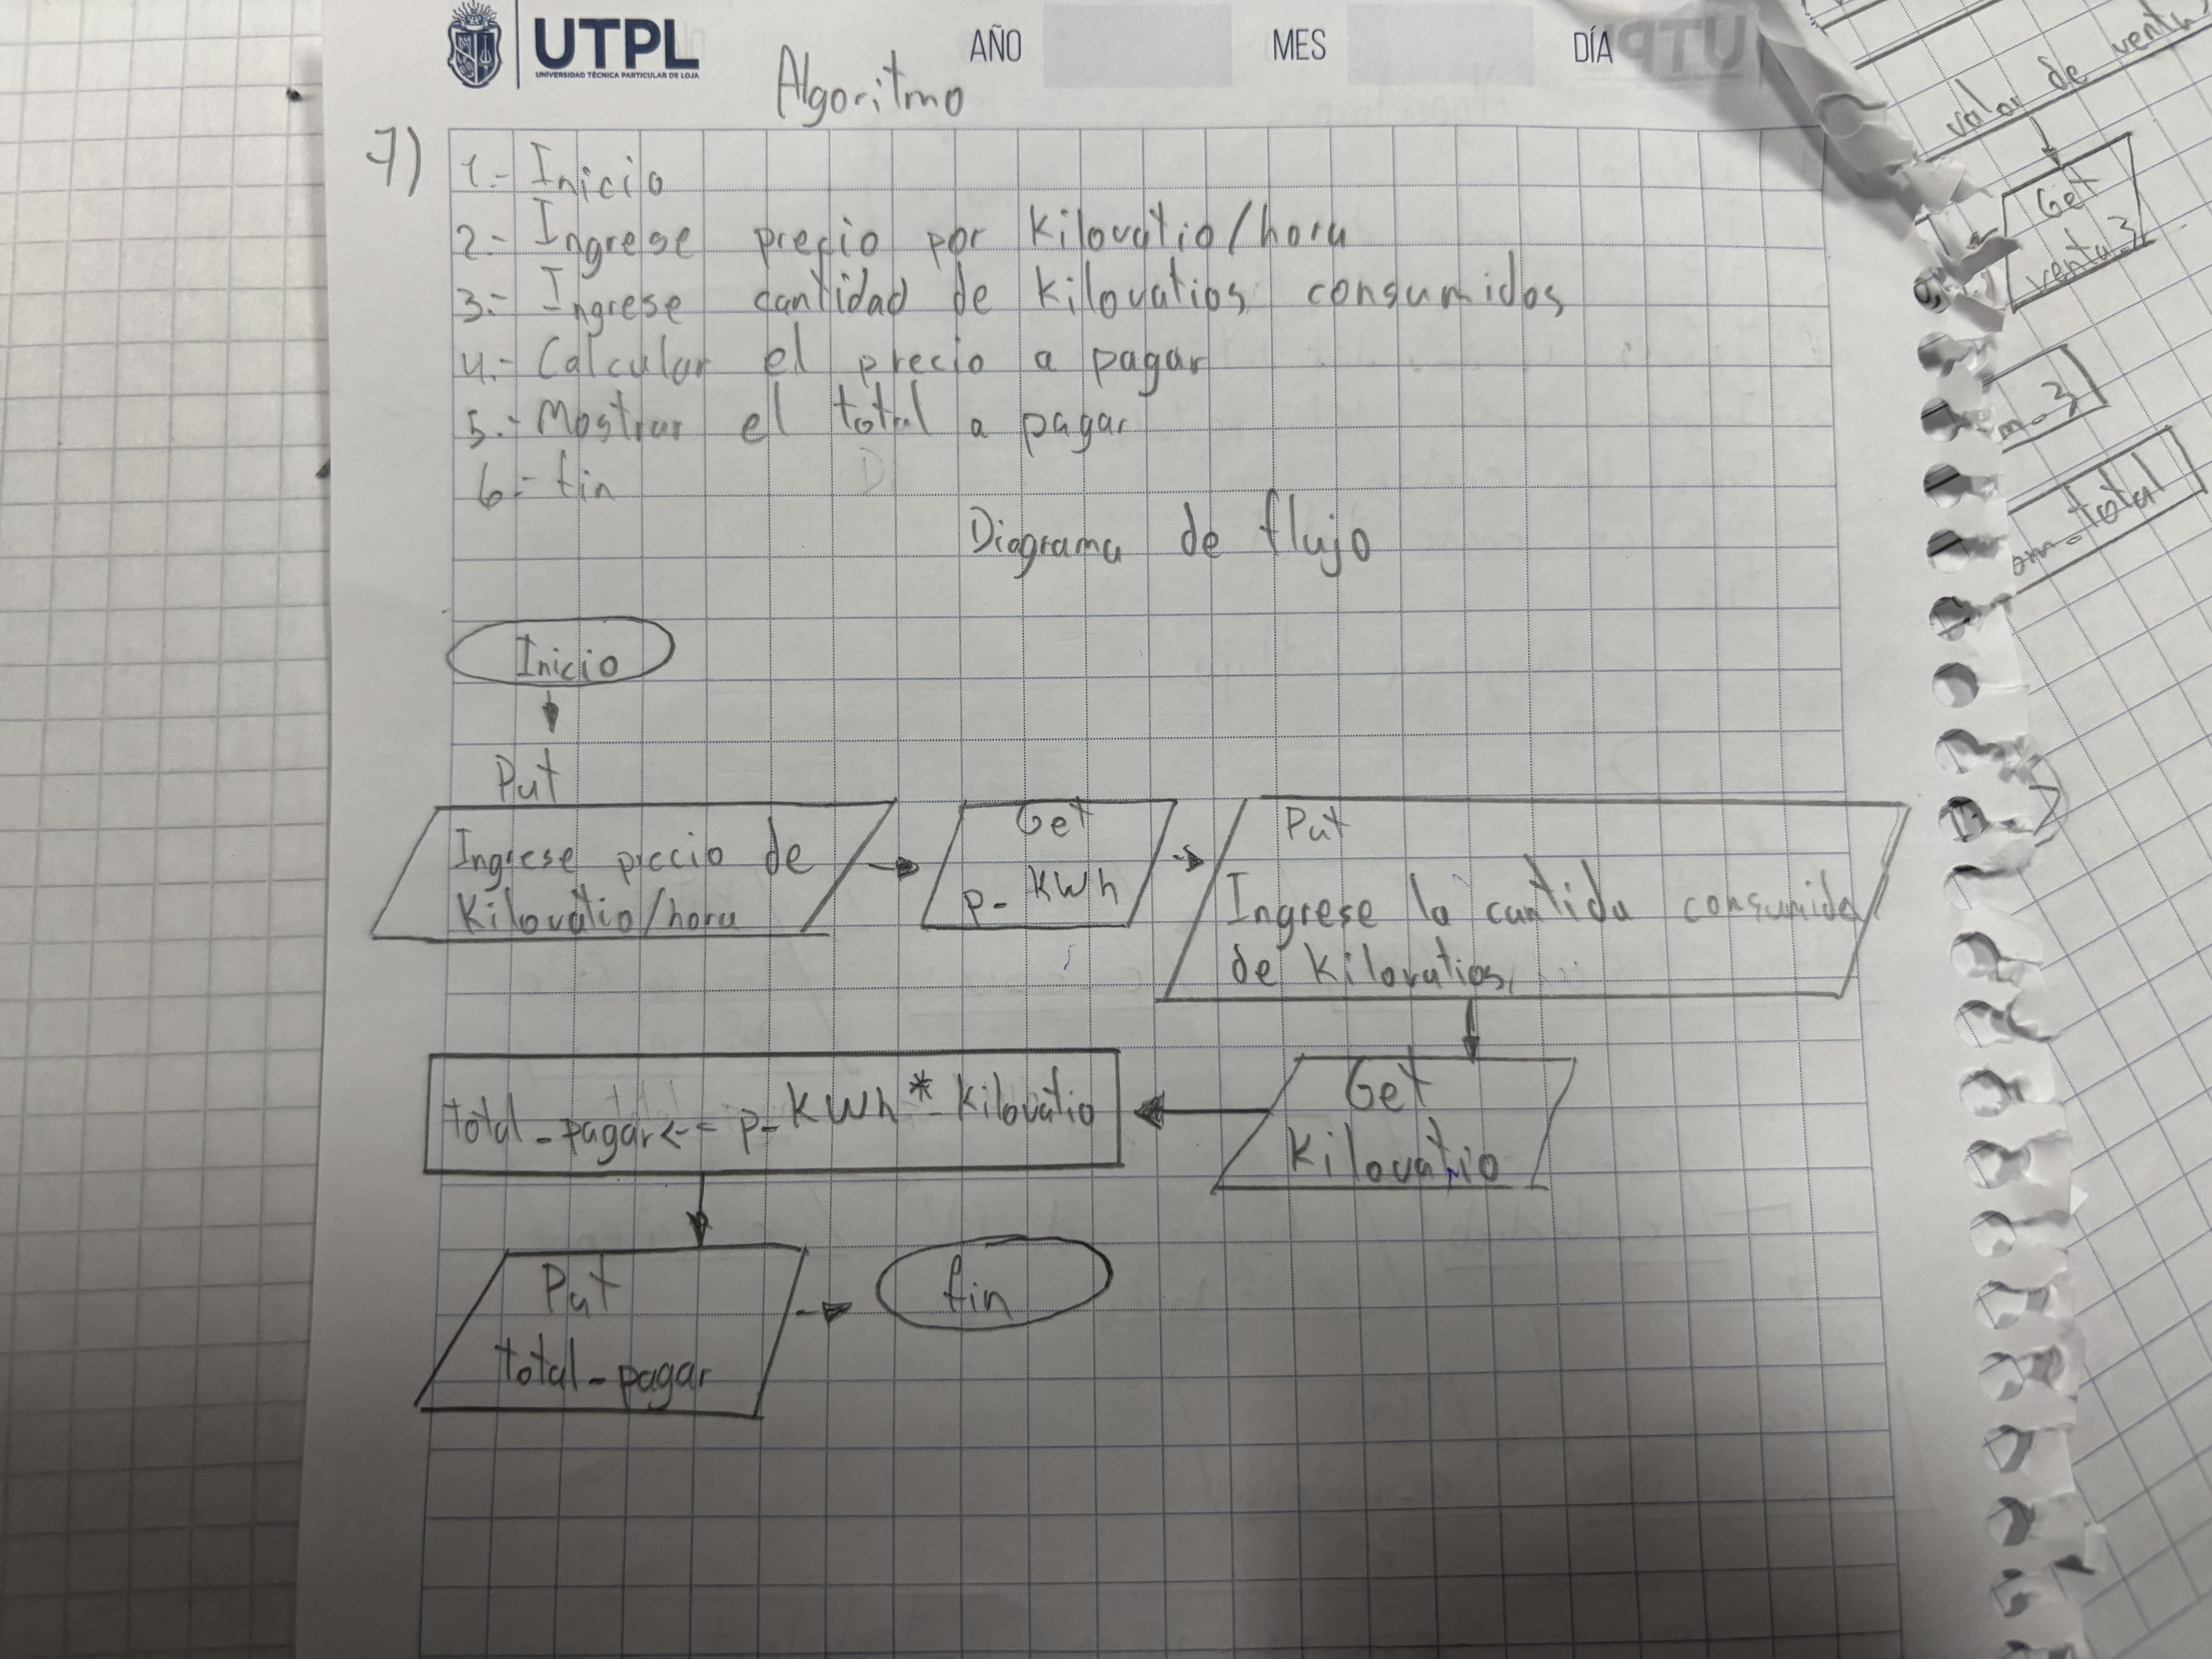 UTPL
UNIVERSIDAD TÉCNICA PARTICULAR DE LOJA
AÑO
MES
DÍA
Algoritmo
7)
1.- Inicio
2.- Ingrese precio por Kilovatio/hora
3.- Ingrese cantidad de Kilovatios consumidos
4.- Calcular el precio a pagar
5.- Mostrar el total a pagar
6.- fin
Diagrama de flujo
Inicio
Put
Ingrese precio de
Kilovatio/hora
Get
P- KWh
Put
Ingrese la cantida consumida
de Kilovatios
Get
Kilovatio
total-pagar<-= P-KWh*kilovatio
Put
total-pagar
fin
valor de
Get
venta-3
m-3
total